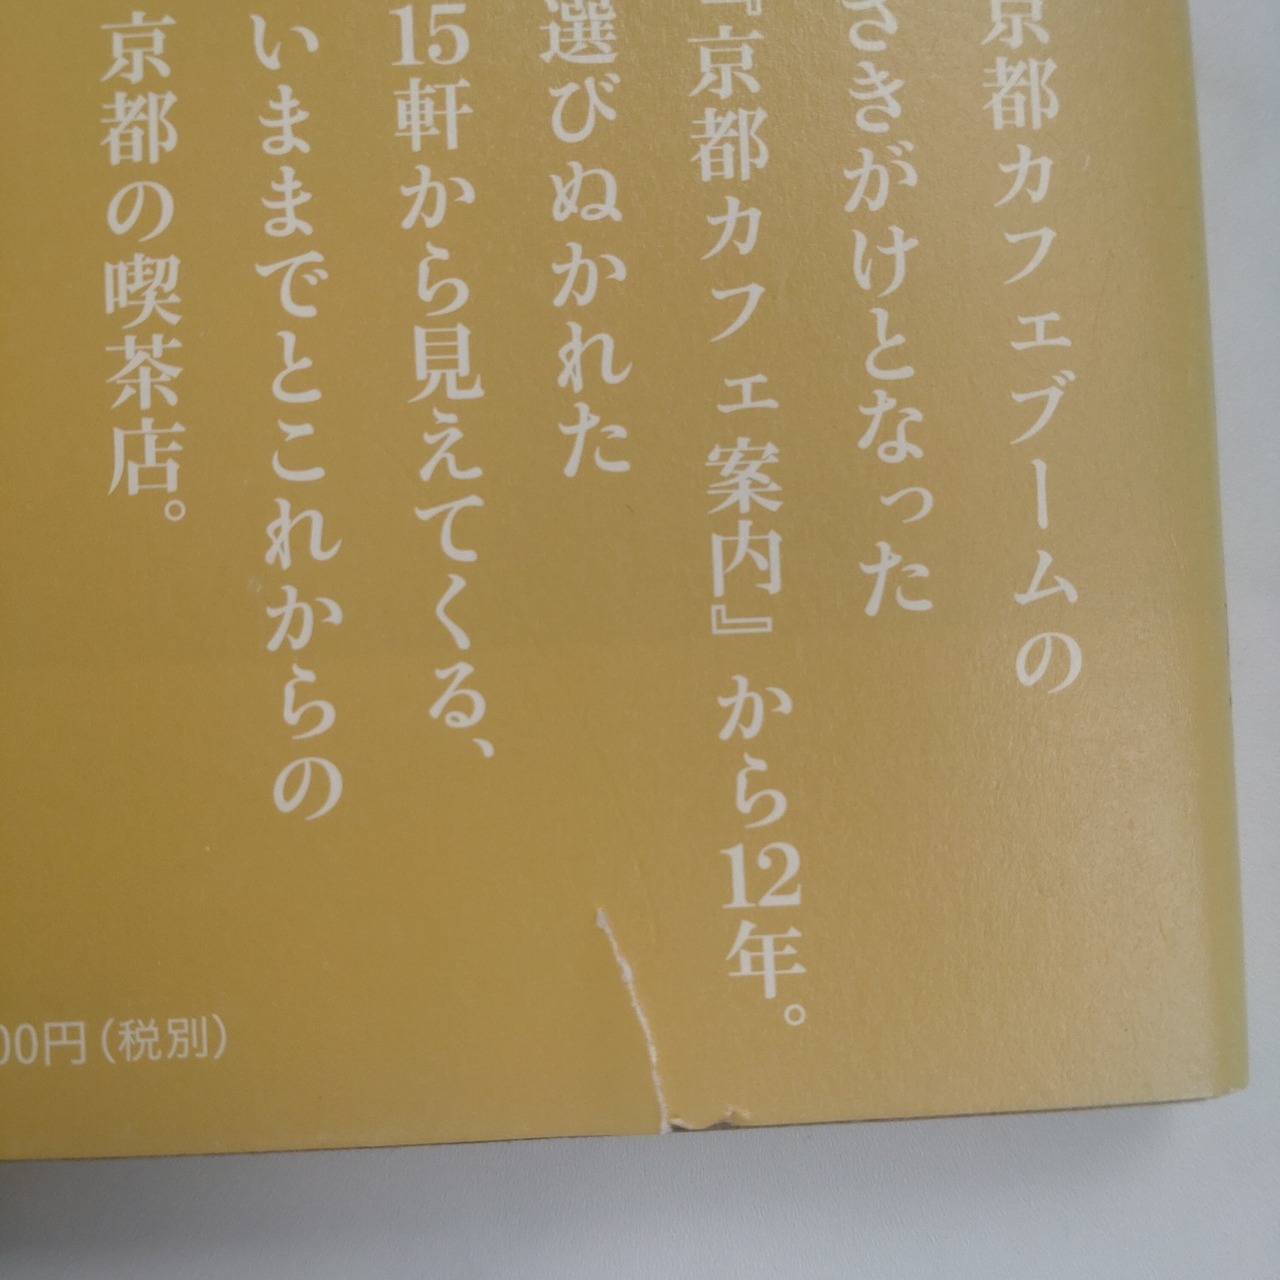 京都カフェブームの
さきがけとなった
『京都カフェ案内』から12年。
選びぬかれた
15軒から見えてくる、
いままでとこれからの
京都の喫茶店。
00円（税別）